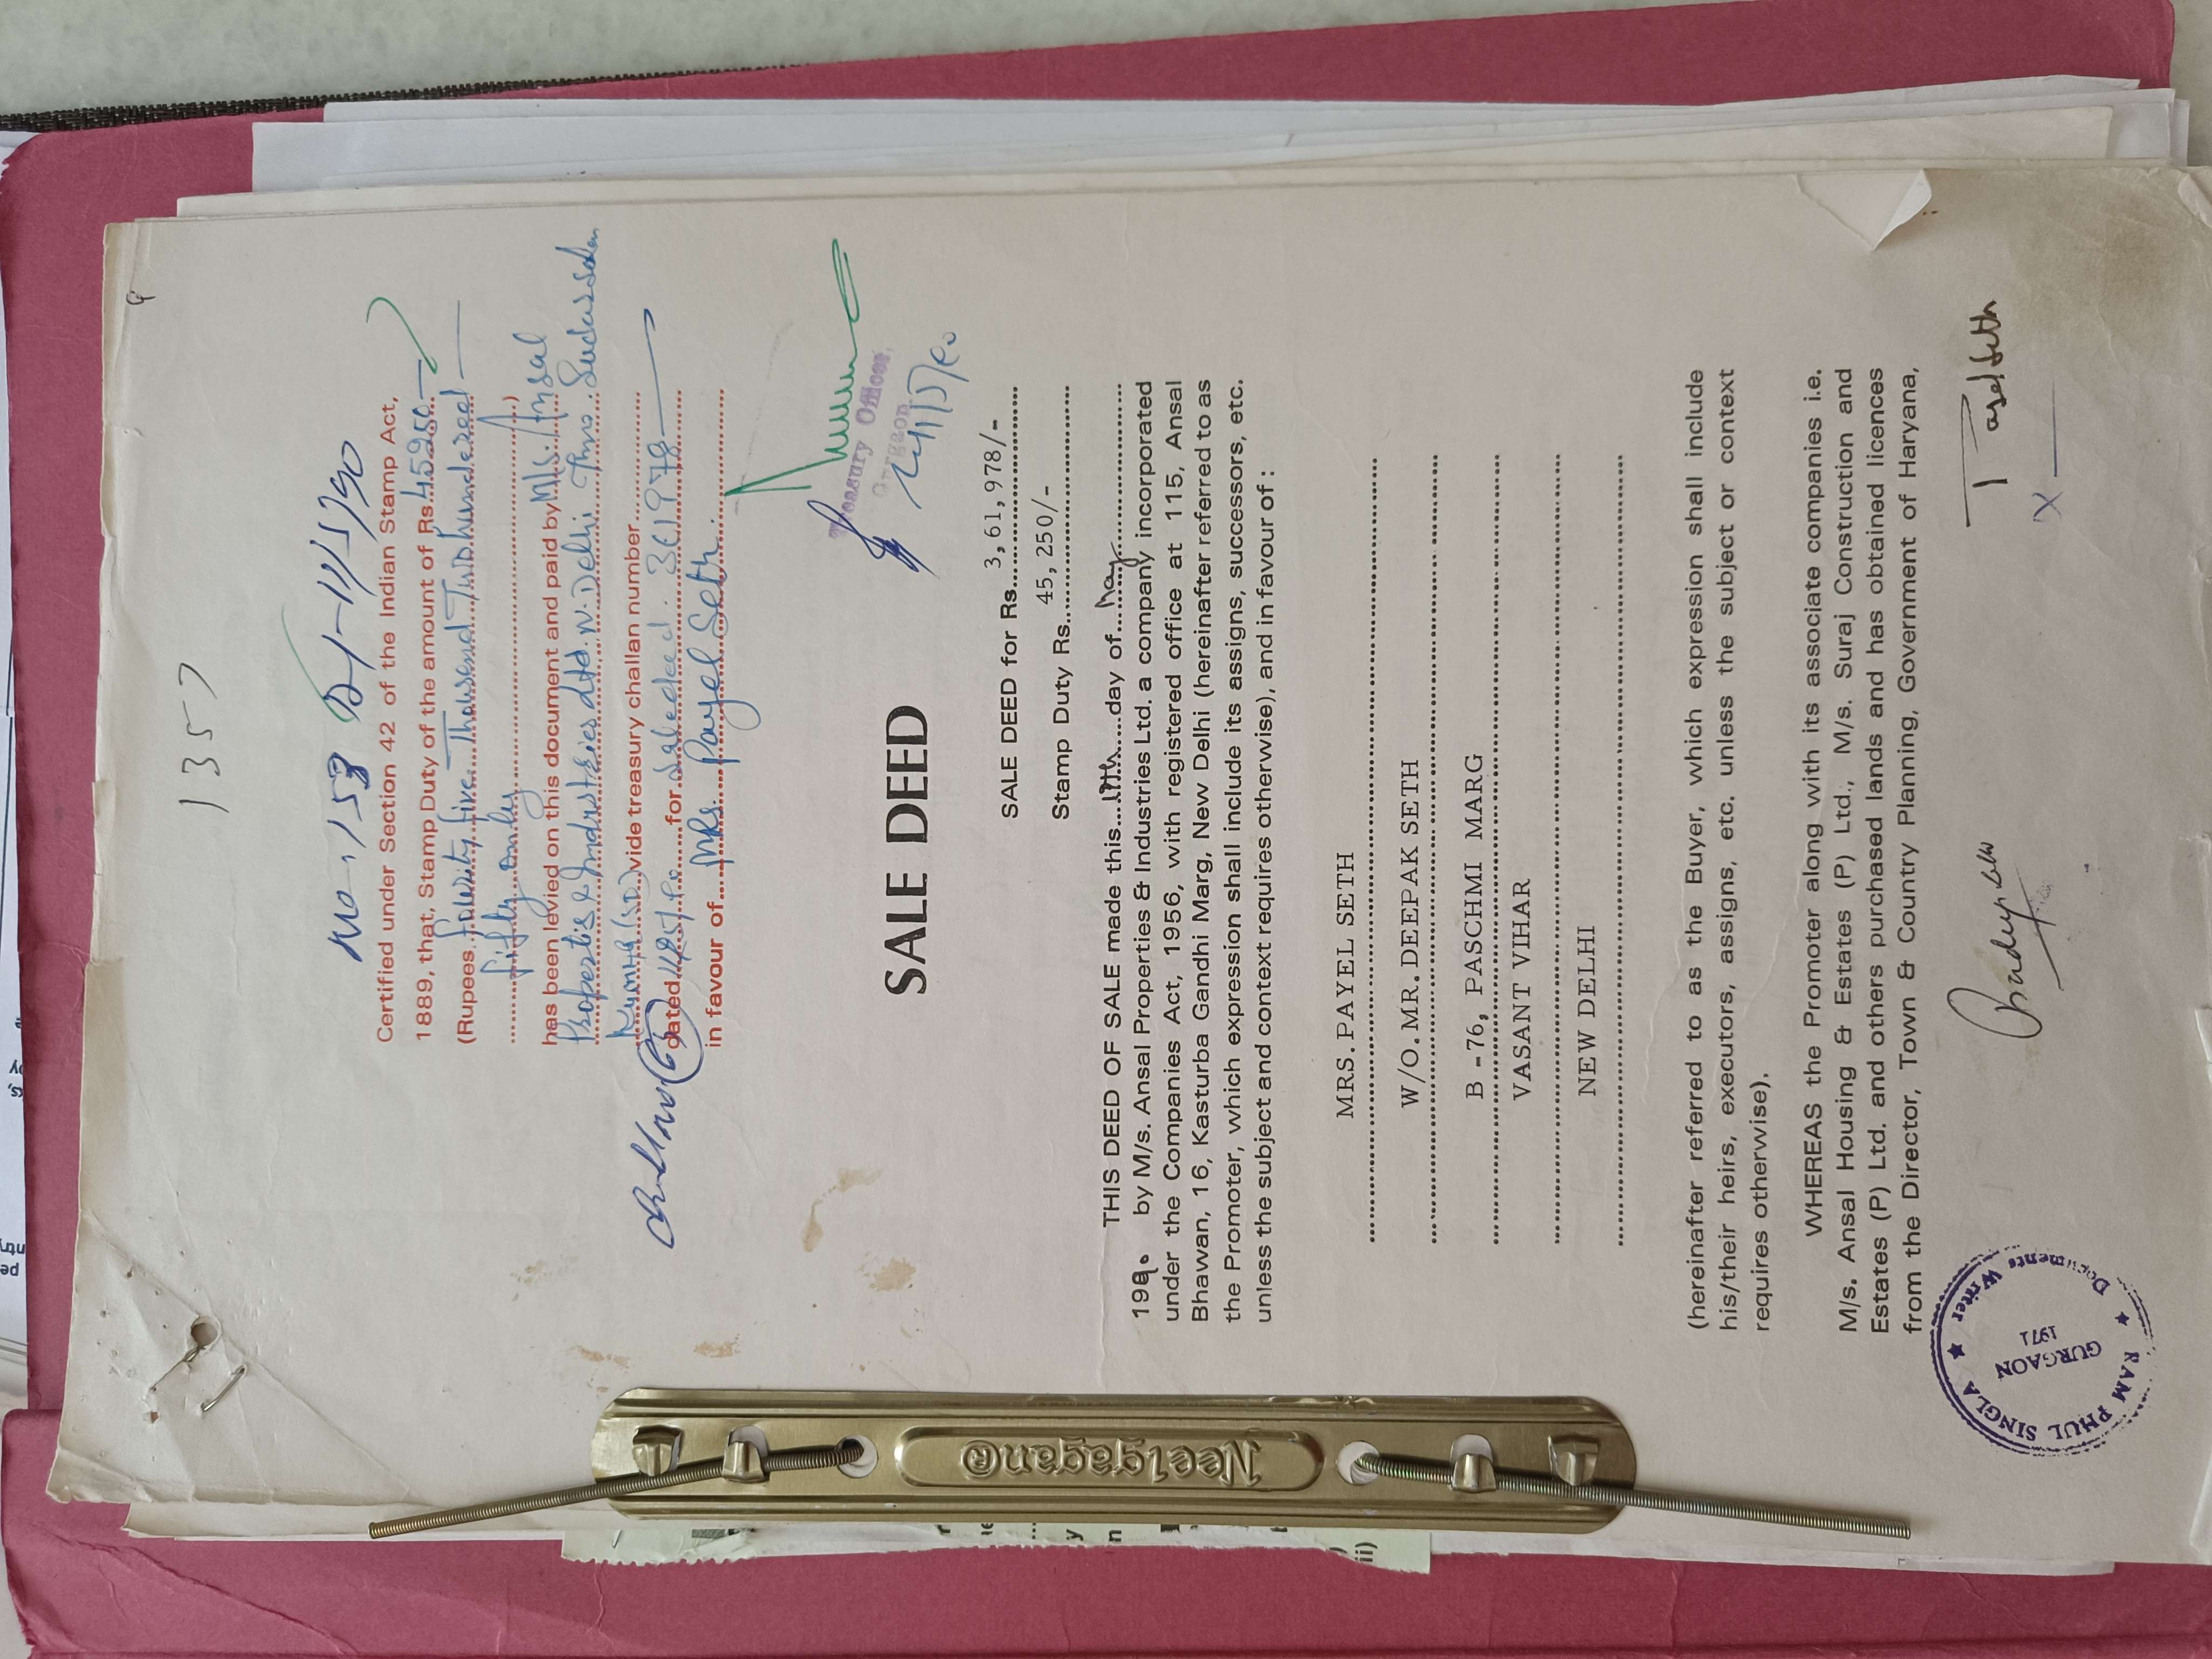 1357
No. 158 Dt-11/5/90
Certified under Section 42 of the Indian Stamp Act,
1889, that, Stamp Duty of the amount of Rs. 45250
(Rupees fourty five Thousand Two hundered
fifty only )
has been levied on this document and paid by M/s. Ansal
Properties & Industries Ltd. N. Delhi Thro Sudarshan
Kumar (SD) vide treasury challan number
dated for sale deed. 361978
in favour of Mrs. Payel Seth.
Treasury Officer,
Gurgaon
SALE DEED
SALE DEED for Rs. 3,61,978/-
Stamp Duty Rs. 45,250/-
THIS DEED OF SALE made this 11th day of May
1990 by M/s. Ansal Properties & Industries Ltd. a company incorporated
under the Companies Act, 1956, with registered office at 115, Ansal
Bhawan, 16, Kasturba Gandhi Marg, New Delhi (hereinafter referred to as
the Promoter, which expression shall include its assigns, successors, etc.
unless the subject and context requires otherwise), and in favour of :
MRS. PAYEL SETH
W/O. MR. DEEPAK SETH
B -76, PASCHMI MARG
VASANT VIHAR
NEW DELHI
(hereinafter referred to as the Buyer, which expression shall include
his/their heirs, executors, assigns, etc. unless the subject or context
requires otherwise).
WHEREAS the Promoter along with its associate companies i.e.
M/s. Ansal Housing & Estates (P) Ltd., M/s. Suraj Construction and
Estates (P) Ltd. and others purchased lands and has obtained licences
from the Director, Town & Country Planning, Government of Haryana,
RAM PHUL SINGLA ★ Documents Writer ★
GURGAON
1971
Payel Seth
X
Neelgagan®